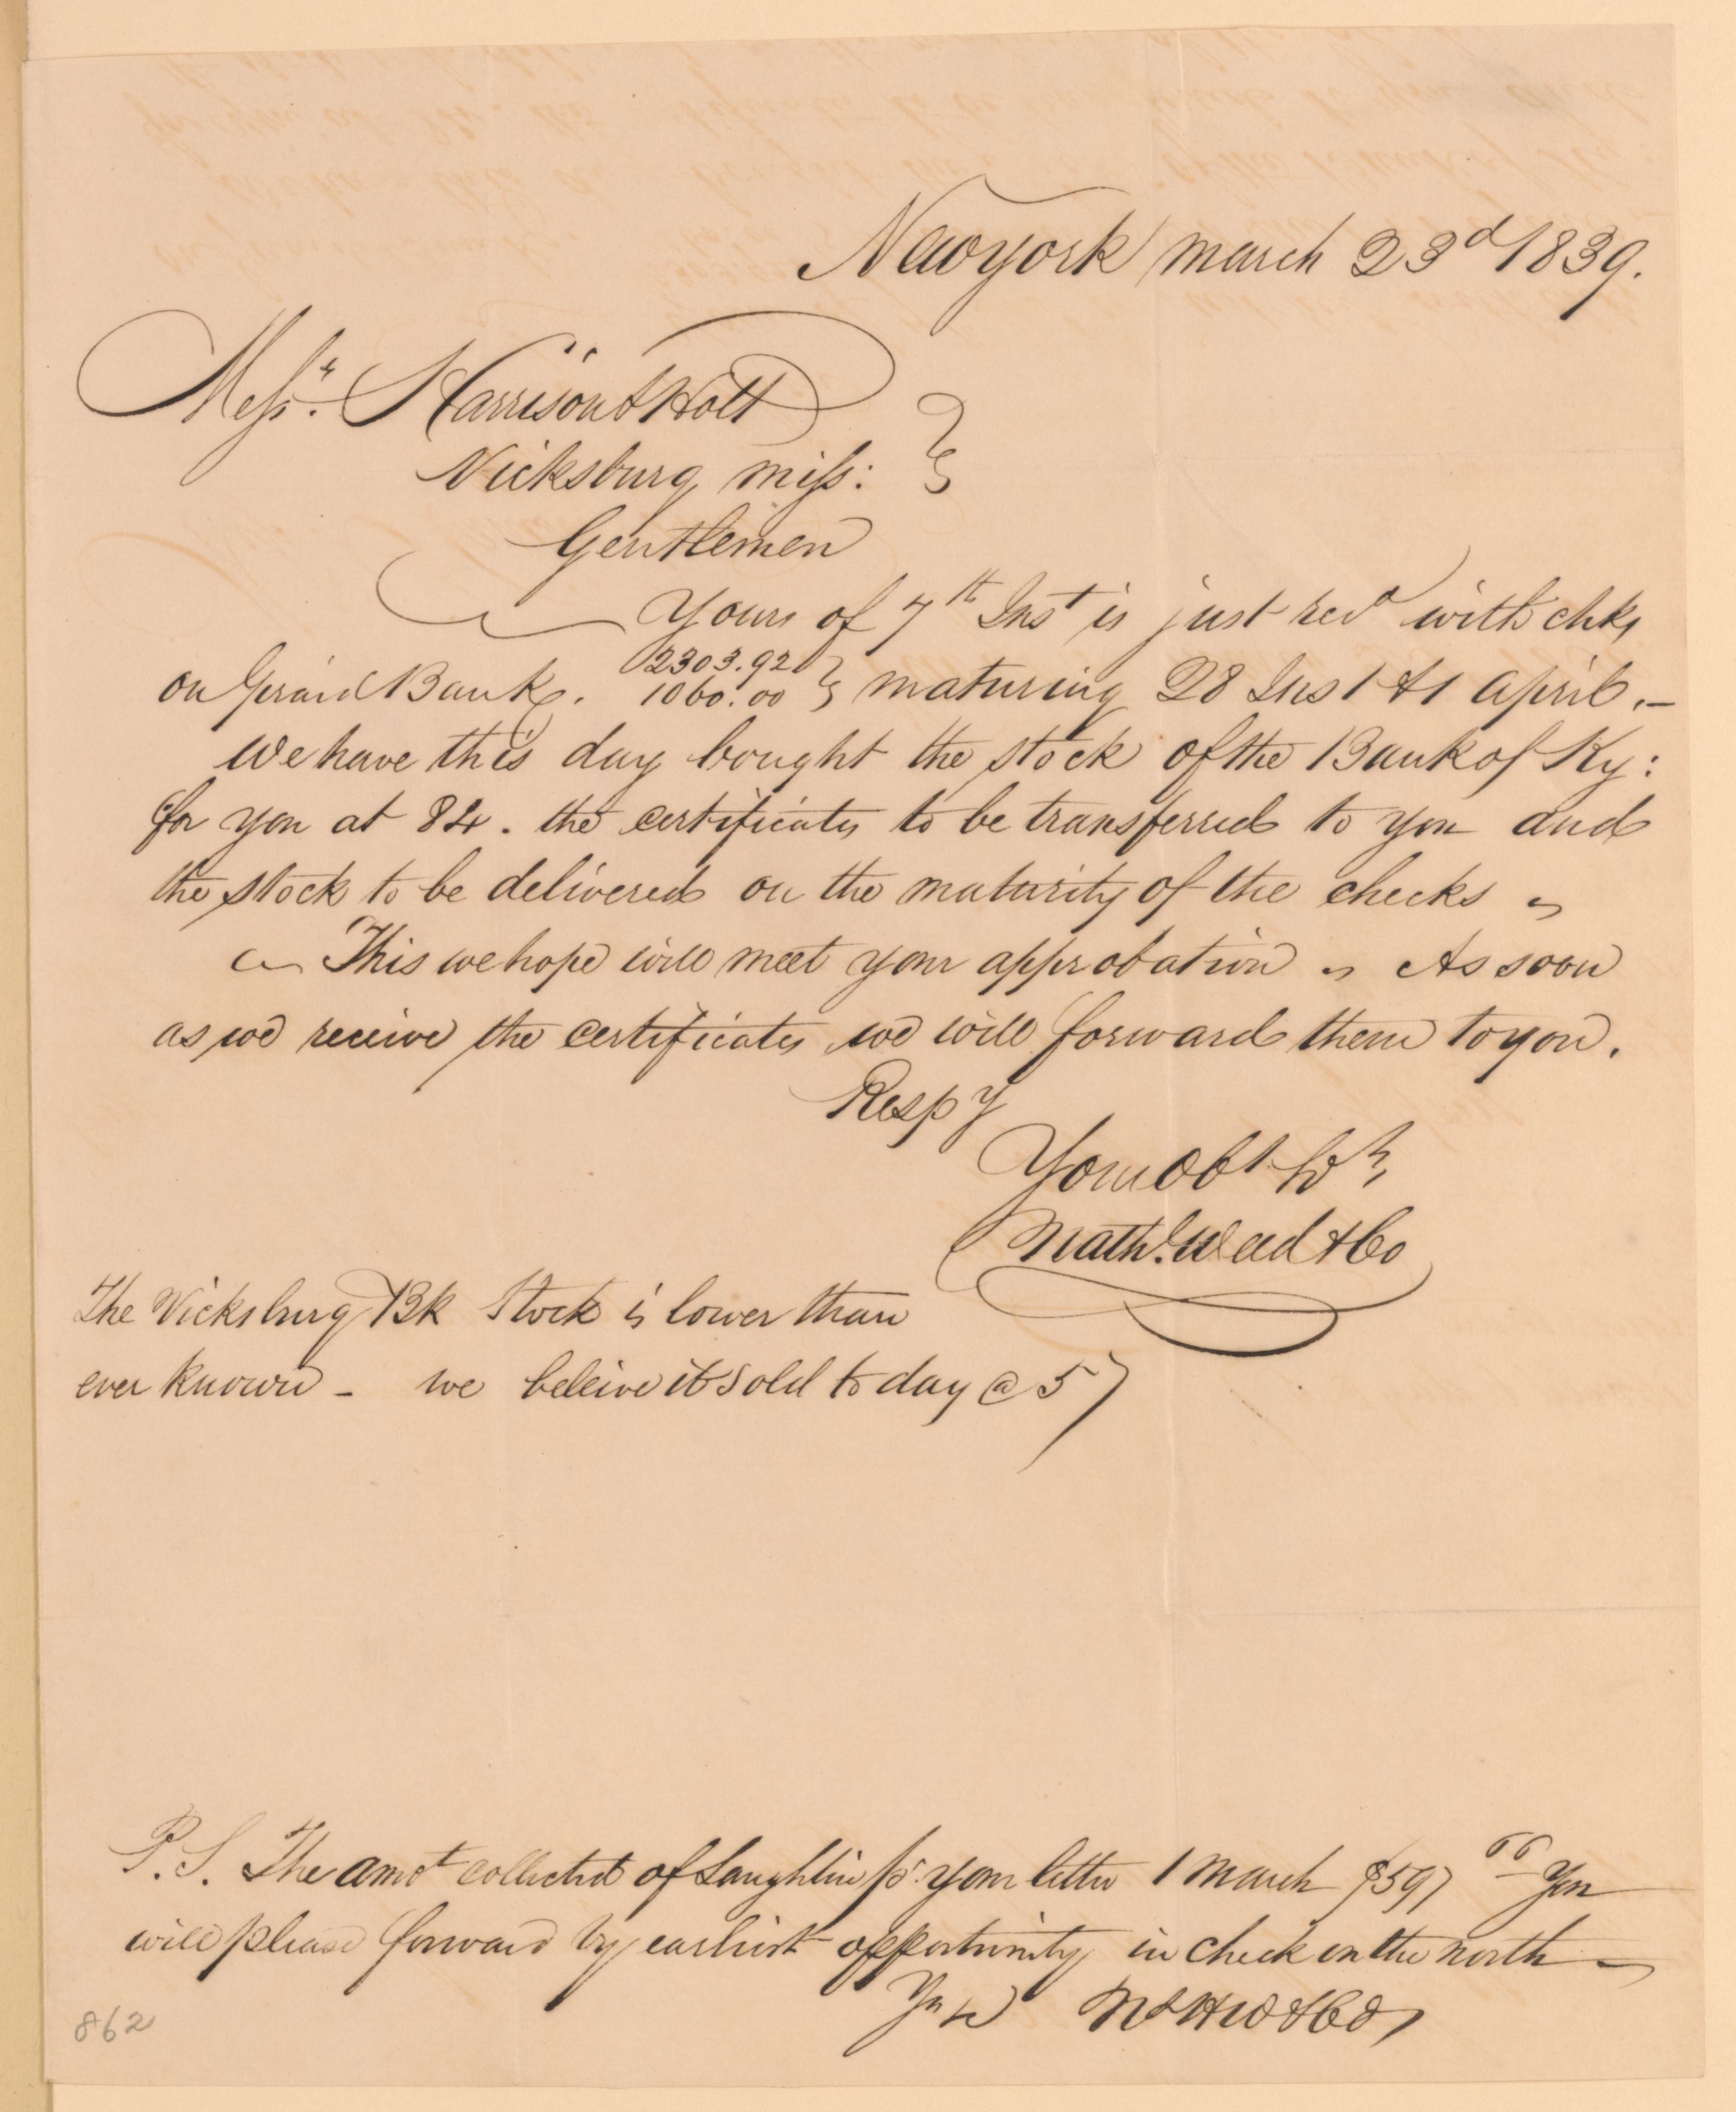 New york march 23d 1839.
Messrs. Harrison & Holt
Vicksburg miss:
Gentlemen
Yours of 7th Inst is just recd with chks
on Girard Bank. 2303.92
1060.00 } maturing 28 Inst & 1 april. —
We have this day bought the stock of the Bank of Ky:
for you at 84. the certificates to be transferred to you and
the stock to be delivered on the maturity of the checks
This we hope will meet your approbation As soon
as we receive the certificates we will forward them to you.
Respy
Your Obt
Nathl. Weed & Co
The Vicksburg Bk Stock is lower than
ever known – we beleive it sold to day @ 57
P.S. The amot collected of Laughlin pr your letter 1 March $597 66 You
will please forward by earliest opportunity in check on the north —
& Co
862